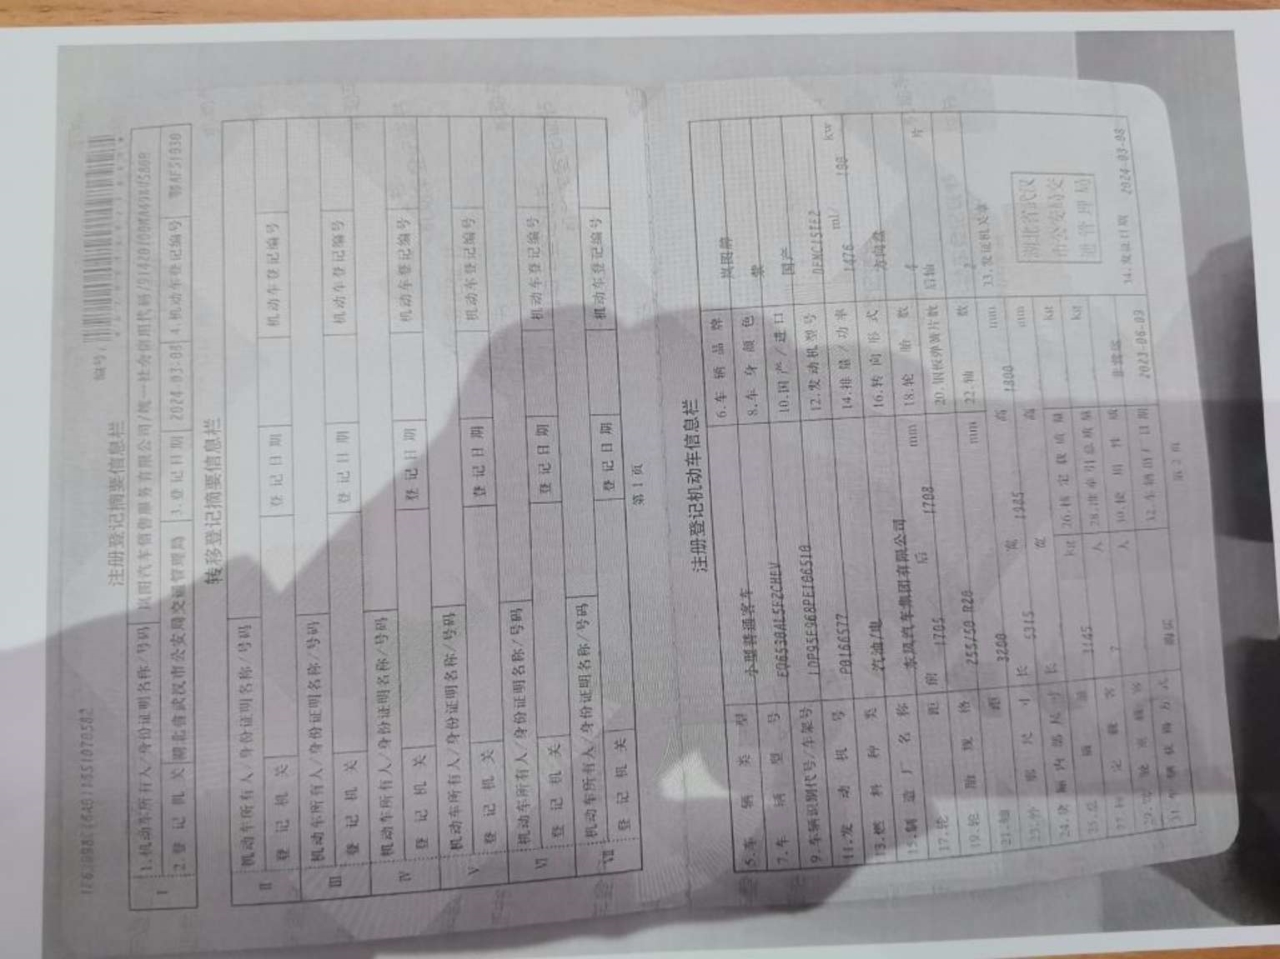 编号:
注册登记摘要信息栏
I
1.机动车所有人/身份证明名称/号码 岚图汽车销售服务有限公司/统一社会信用代码/
2.登记机关 湖北省武汉市公安局交通管理局 3.登记日期 2024-03-08 4.机动车登记编号
转移登记摘要信息栏
II
机动车所有人/身份证明名称/号码
登记机关 登记日期 机动车登记编号
III
机动车所有人/身份证明名称/号码
登记机关 登记日期 机动车登记编号
IV
机动车所有人/身份证明名称/号码
登记机关 登记日期 机动车登记编号
V
机动车所有人/身份证明名称/号码
登记机关 登记日期 机动车登记编号
VI
机动车所有人/身份证明名称/号码
登记机关 登记日期 机动车登记编号
VII
机动车所有人/身份证明名称/号码
登记机关 登记日期 机动车登记编号
第1页
注册登记机动车信息栏
5.车辆类型 小型普通客车 6.车辆品牌 岚图牌
7.车辆型号 8.车身颜色 紫
9.车辆识别代号/车架号 LDP95E968PE106510 10.国产/进口 国产
11.发动机号 P0166577 12.发动机型号 DFMC15TE2
13.燃料种类 汽油/电 14.排量/功率 1476 ml/ 100 kw
15.制造厂名称 东风汽车集团有限公司 16.转向形式 方向盘
17.轮距 前 1705 后 1708 mm 18.轮胎数 4
19.轮胎规格 255/50 R20 20.钢板弹簧片数 后轴 片
21.轴距 3200 mm 22.轴数 2
23.外廓尺寸 长 5315 宽 1985 高 1800 mm
24.货厢内部尺寸 长 宽 高 mm
25.总质量 3145 kg 26.核定载质量 kg
27.核定载客 7 人 28.准牵引总质量 kg
29.驾驶室载客 人 30.使用性质 非营运
31.车辆获得方式 购买 32.车辆出厂日期 2023-06-09
33.发证机关章
湖北省武汉
市公安局交
通管理局
34.发证日期 2024-03-08
第2页